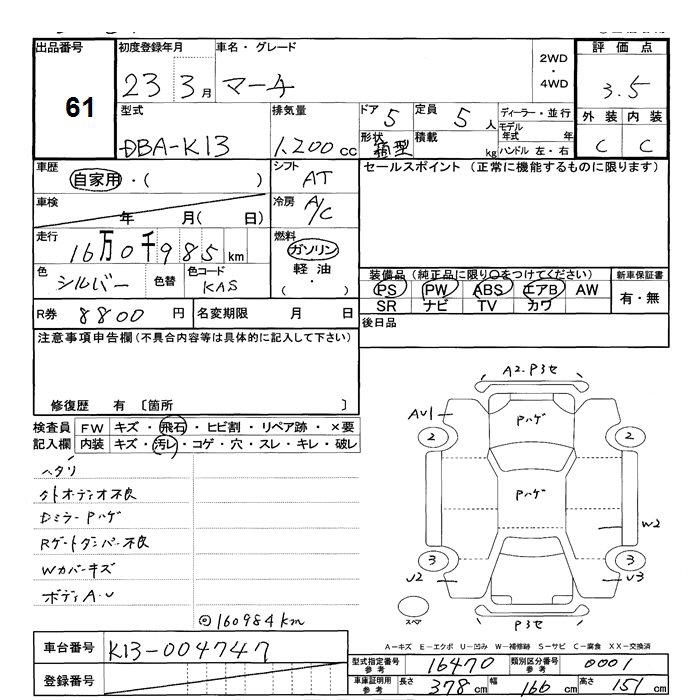 出品番号
61
初度登録年月
23 3月
車名・グレード
マーチ
2WD
・
4WD
評価点
3.5
外装 内装
C C
型式
DBA-K13
排気量
1,200cc
ドア 5
定員 5人
形状 箱型
積載 kg
ディーラー・並行
モデル年式 年
ハンドル 左・右
車歴
自家用・( )
シフト
AT
車検
年 月( 日)
冷房
A/C
走行
16万0千985km
燃料
ガソリン
軽油
( ・ )
色
シルバー
色替
色コード
KAS
R券 8800円
名変期限 月 日
セールスポイント (正常に機能するものに限ります)
装備品(純正品に限り○をつけてください)
PS PW ABS エアB AW
SR ナビ TV カワ
新車保証書
有・無
後日品
注意事項申告欄(不具合内容等は具体的に記入して下さい)
修復歴 有 〔箇所 〕
検査員記入欄
FW キズ・飛石・ヒビ割・リペア跡・×要
内装 キズ・汚レ・コゲ・穴・スレ・キレ・破レ
ヘタリ
外オーディオ不良
Dミラー Pハゲ
Rゲートダンパー不良
Wカバーキズ
ボディA・U
◎160984km
A2・P3セ
Pハゲ
AU1
2
2
Pハゲ
W2
3
3
U2
U3
スペ
P3セ
A-キズ E-エクボ U-凹み W-補修跡 S-サビ C-腐食 XX-交換済
車台番号
K13-004747
登録番号
型式指定番号 参考
16470
類別区分番号 参考
0001
車庫証明用 参考
長さ 378cm
幅 166cm
高さ 151cm